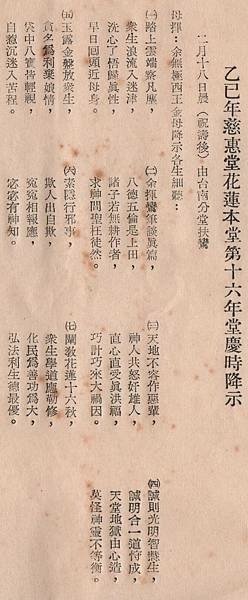 乙巳年慈惠堂花蓮本堂第十六年堂慶時降示
二月十八日晨（祝壽後）由台南分堂扶鸞
母揮：余無極西王金母降示各生細聽：
㈠踏上雲端察凡塵，
衆生浪流入迷津，
洗心了悟歸眞性，
早日回頭近母身。
㈡金揮鸞筆談眞篇，
八德五倫是上田，
諸子若無耕作者，
求神問聖枉徒然。
㈢天地不容作惡輩，
神人共怒奸雄人，
直心直受眞洪福，
巧計巧來大禍因。
㈣誠則光明智慧生，
誠明合一道將成，
天堂地獄由心造，
莫怪神靈不等衡。
㈤玉露金盤放衆生，
貪名爲利棄娘情，
袋中八寶皆輕視，
自惹沉迷入苦程。
㈥索隱行邪事，
欺人出自欺，
寃寃相報應，
宓宓有神知。
㈦闡敎花蓮十六秋，
衆生學道應勤修，
化民爲善功爲大，
弘法利生德最優。